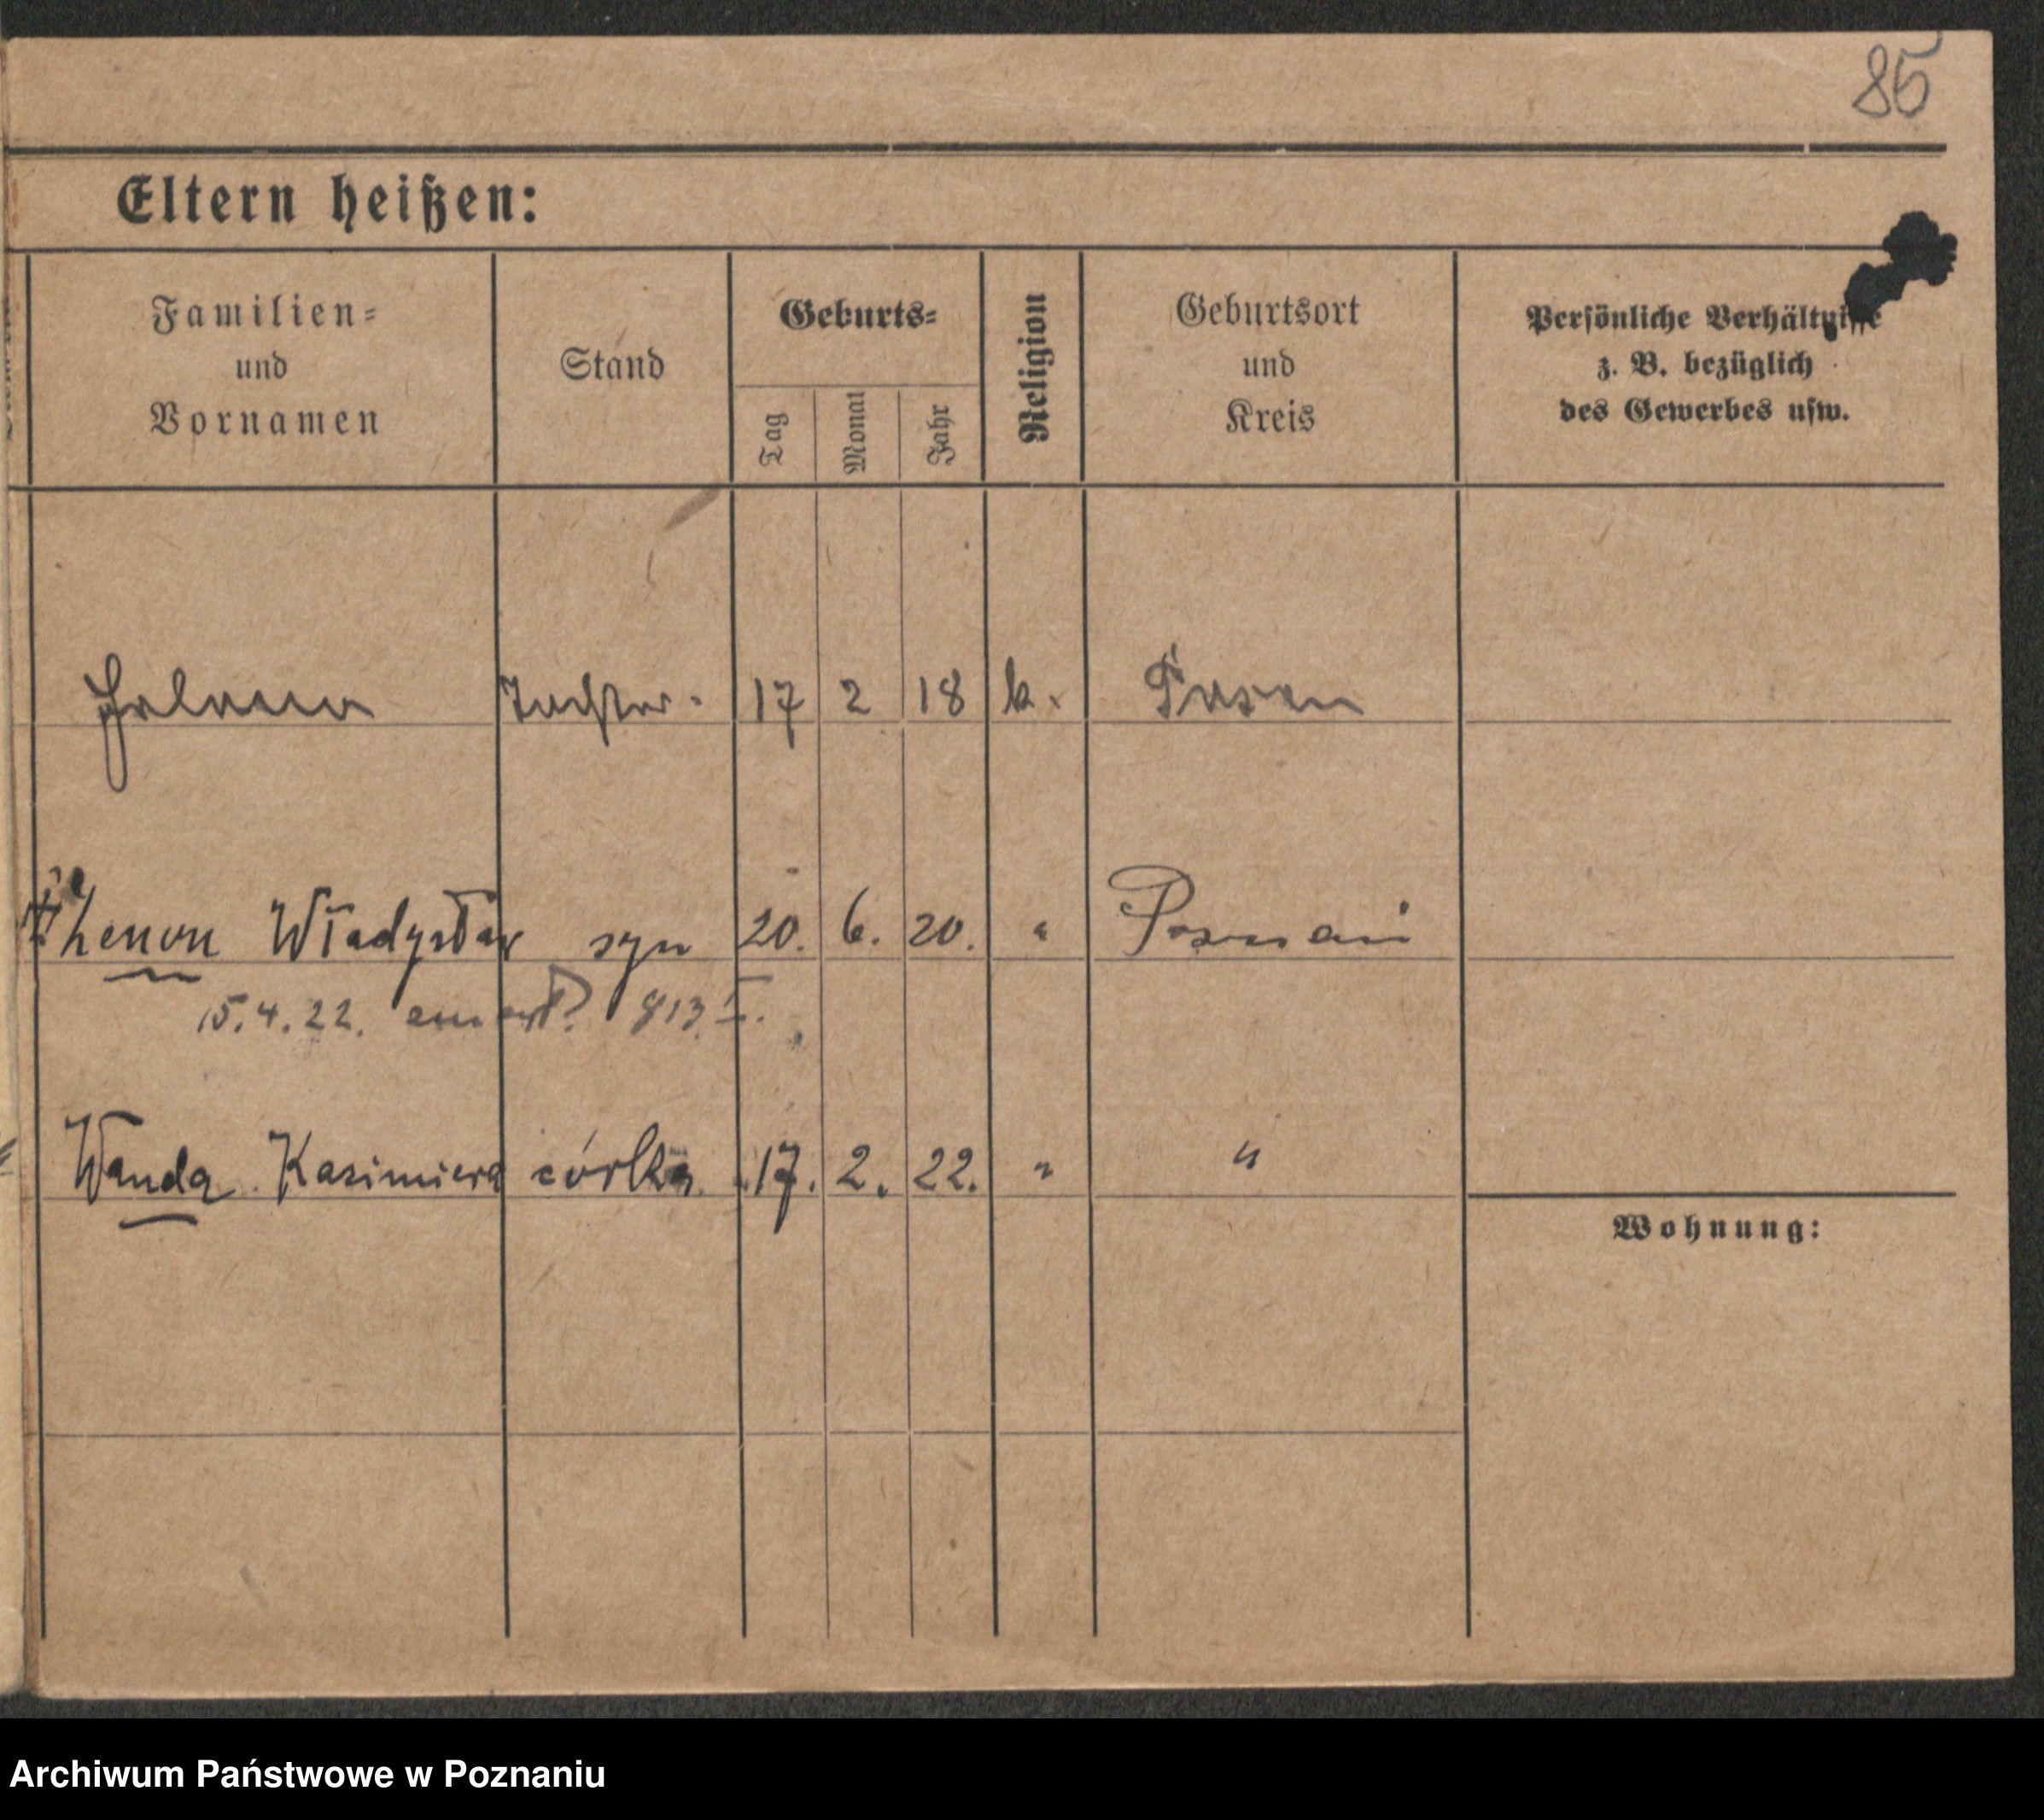 85
Eltern heißen:
Familien= und Vornamen
Stand
Geburts=
Tag
Monat
Jahr
Religion
Geburtsort und Kreis
Persönliche Verhältnisse z. B. bezüglich des Gewerbes usw.
Helena Tochter. 17 2 18 k. Posen
Zenon Władysław syn 20. 6. 20. " Poznań
15.4.22. 813
Wanda Kazimiera córka 17. 2. 22. " "
Wohnung:
Archiwum Państwowe w Poznaniu